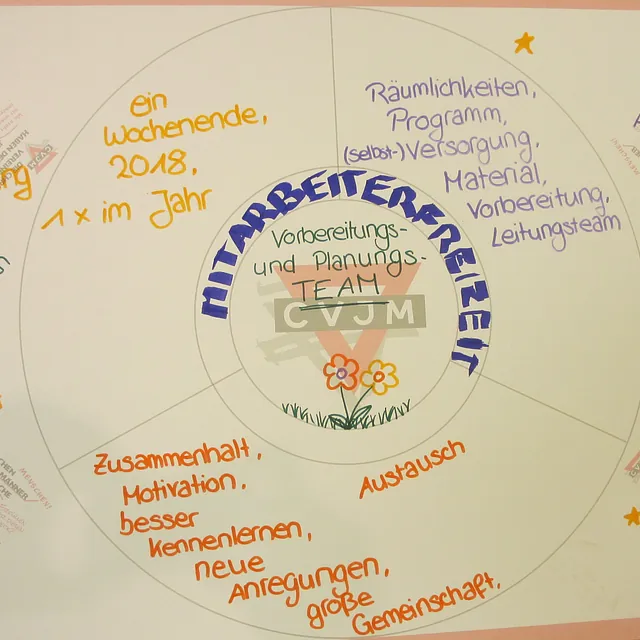 ein
Wochenende,
2018,
1 x im Jahr
Räumlichkeiten,
Programm,
(selbst-)Versorgung,
Material,
Vorbereitung,
Leitungsteam
MITARBEITERFREIZEIT
Vorbereitungs-
und Planungs-
TEAM
CVJM
Zusammenhalt,
Motivation,
besser
kennenlernen,
neue
Anregungen,
große
Gemeinschaft,
Austausch